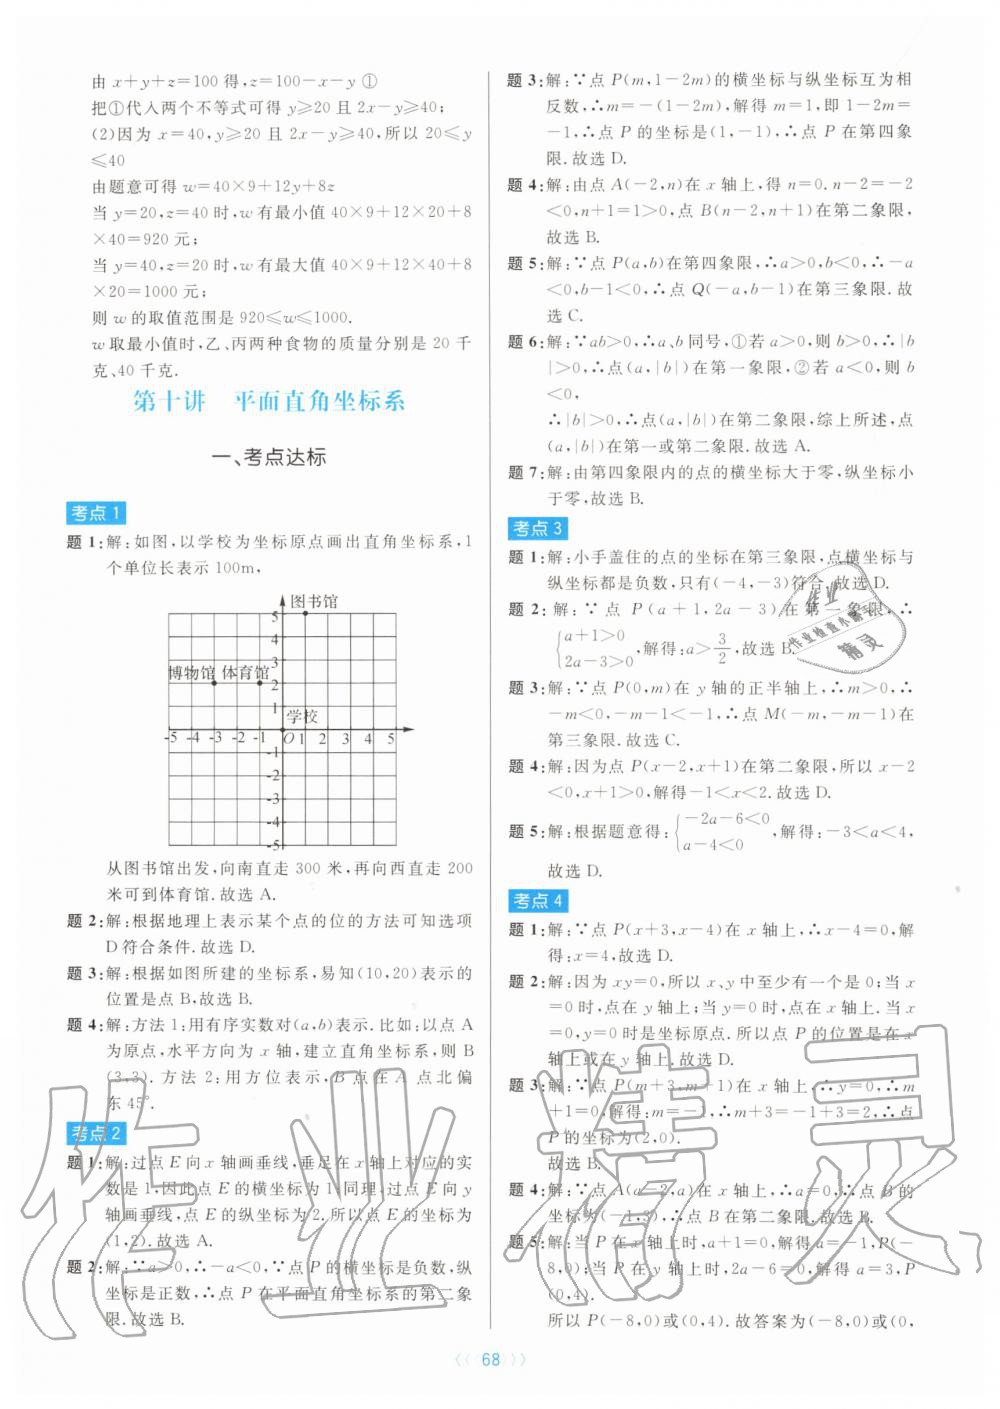 由 x+y+z=100 得,z=100-x-y ①
把①代入两个不等式可得 y≥20 且 2x-y≥40;
(2)因为 x=40,y≥20 且 2x-y≥40,所以 20≤y
≤40
由题意可得 w=40×9+12y+8z
当 y=20,z=40 时,w 有最小值 40×9+12×20+8
×40=920 元;
当 y=40,z=20 时,w 有最大值 40×9+12×40+8
×20=1000 元;
则 w 的取值范围是 920≤w≤1000.
w 取最小值时,乙、丙两种食物的质量分别是 20 千
克、40 千克.
第十讲 平面直角坐标系
一、考点达标
考点 1
题 1:解:如图,以学校为坐标原点画出直角坐标系,1
个单位长表示 100m,
图书馆
5
4
3
博物馆 体育馆
2
1
学校
-5 -4 -3 -2 -1 O 1 2 3 4 5
-1
-2
-3
-4
-5
从图书馆出发,向南直走 300 米,再向西直走 200
米可到体育馆.故选 A.
题 2:解:根据地理上表示某个点的位的方法可知选项
D 符合条件.故选 D.
题 3:解:根据如图所建的坐标系,易知(10,20)表示的
位置是点 B,故选 B.
题 4:解:方法 1:用有序实数对(a,b)表示.比如:以点 A
为原点,水平方向为 x 轴,建立直角坐标系,则 B
(3,3).方法 2:用方位表示,B 点在 A 点北偏
东 45°.
考点 2
题 1:解:过点 E 向 x 轴画垂线,垂足在 x 轴上对应的实
数是 1,因此点 E 的横坐标为 1;同理,过点 E 向 y
轴画垂线,点 E 的纵坐标为 2.所以点 E 的坐标为
(1,2).故选 A.
题 2:解:∵a>0,∴-a<0,∵点 P 的横坐标是负数,纵
坐标是正数,∴点 P 在平面直角坐标系的第二象
限.故选 B.
题 3:解:∵点 P(m,1-2m)的横坐标与纵坐标互为相
反数,∴m=-(1-2m),解得 m=1,即 1-2m=
-1,∴点 P 的坐标是(1,-1),∴点 P 在第四象
限.故选 D.
题 4:解:由点 A(-2,n)在 x 轴上,得 n=0.n-2=-2
<0,n+1=1>0,点 B(n-2,n+1)在第二象限,
故选 B.
题 5:解:∵点 P(a,b)在第四象限,∴a>0,b<0,∴-a
<0,b-1<0,∴点 Q(-a,b-1)在第三象限.故
选 C.
题 6:解:∵ab>0,∴a、b 同号,①若 a>0,则 b>0,∴|b
|>0,∴点(a,|b|)在第一象限,②若 a<0,则 b
<0,
∴|b|>0,∴点(a,|b|)在第二象限,综上所述,点
(a,|b|)在第一或第二象限.故选 A.
题 7:解:由第四象限内的点的横坐标大于零,纵坐标小
于零,故选 B.
考点 3
题 1:解:小手盖住的点的坐标在第三象限,点横坐标与
纵坐标都是负数,只有(-4,-3)符合.故选 D.
题 2:解:∵点 P(a+1,2a-3)在第一象限,∴
{a+1>0 2a-3>0,解得:a>3/2,故选 B.
题 3:解:∵点 P(0,m)在 y 轴的正半轴上,∴m>0,∴
-m<0,-m-1<-1,∴点 M(-m,-m-1)在
第三象限.故选 C.
题 4:解:因为点 P(x-2,x+1)在第二象限,所以 x-2
<0,x+1>0,解得-1<x<2.故选 D.
题 5:解:根据题意得:{-2a-6<0 a-4<0,解得:-3<a<4,
故选 D.
考点 4
题 1:解:∵点 P(x+3,x-4)在 x 轴上,∴x-4=0,解
得:x=4,故选 D.
题 2:解:因为 xy=0,所以 x、y 中至少有一个是 0;当 x
=0 时,点在 y 轴上;当 y=0 时,点在 x 轴上.当 x
=0,y=0 时是坐标原点.所以点 P 的位置是在 x
轴上或在 y 轴上.故选 D.
题 3:解:∵点 P(m+3,m+1)在 x 轴上,∴y=0,∴m
+1=0,解得:m=-1,∴m+3=-1+3=2,∴点
P 的坐标为(2,0).
故选 B.
题 4:解:∵点 A(a-2,a)在 x 轴上,∴a=0,∴点 B 的
坐标为(-1,3),∴点 B 在第二象限.故选 B.
题 5:解:当 P 在 x 轴上时,a+1=0,解得 a=-1,P(-
8,0);当 P 在 y 轴上时,2a-6=0,解得 a=3,P
(0,4).
所以 P(-8,0)或(0,4).故答案为(-8,0)或(0,
68
作业精灵
作业
作业检查小帮手
精灵